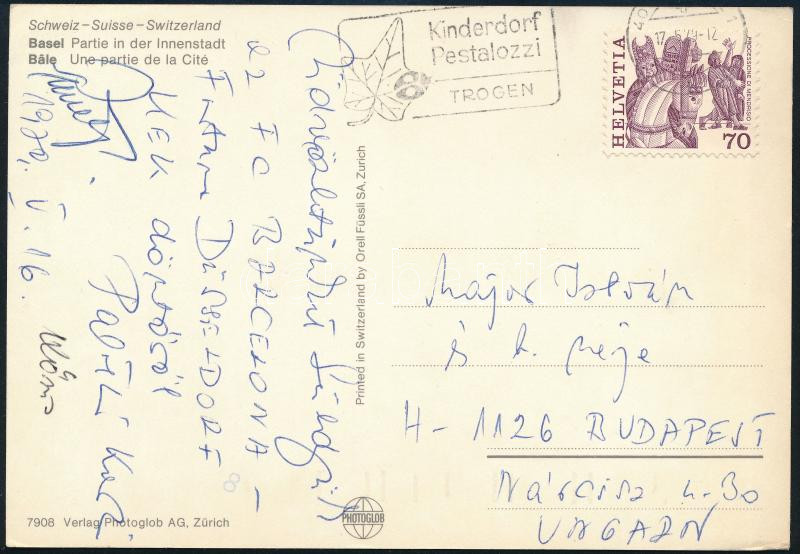 Schweiz – Suisse – Switzerland
Basel Partie in der Innenstadt
Bâle Une partie de la Cité
Kinderdorf
Pestalozzi
TROGEN
HELVETIA
PROCESSIONE DI MENDRISIO
70
Üdvözletünket küldjük
az FC BARCELONA –
Fortuna DÜSSELDORF
KEK döntőről
1979. V. 16.
Printed in Switzerland by Orell Füssli SA, Zurich
Major István
és h. neje
H- 1126 BUDAPEST
Nárcisz u. 30
UNGARN
PHOTOGLOB
7908 Verlag Photoglob AG, Zürich